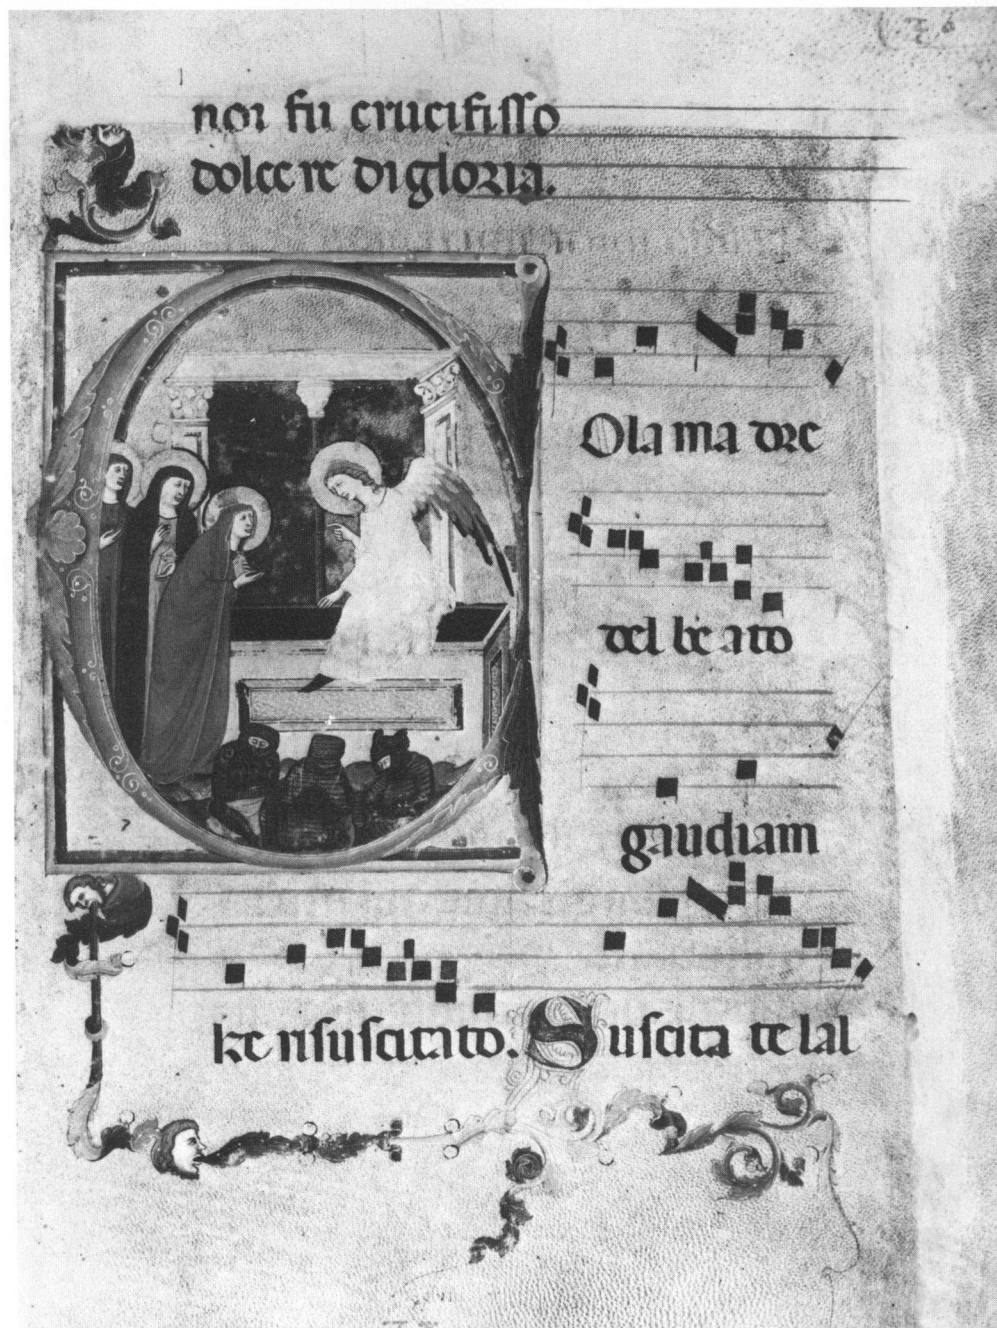 noi fu crucifisso
dolce re di gloria.
Ola ma dre
del be a to
gaudiam
ke risuscitato. Suscita te lal